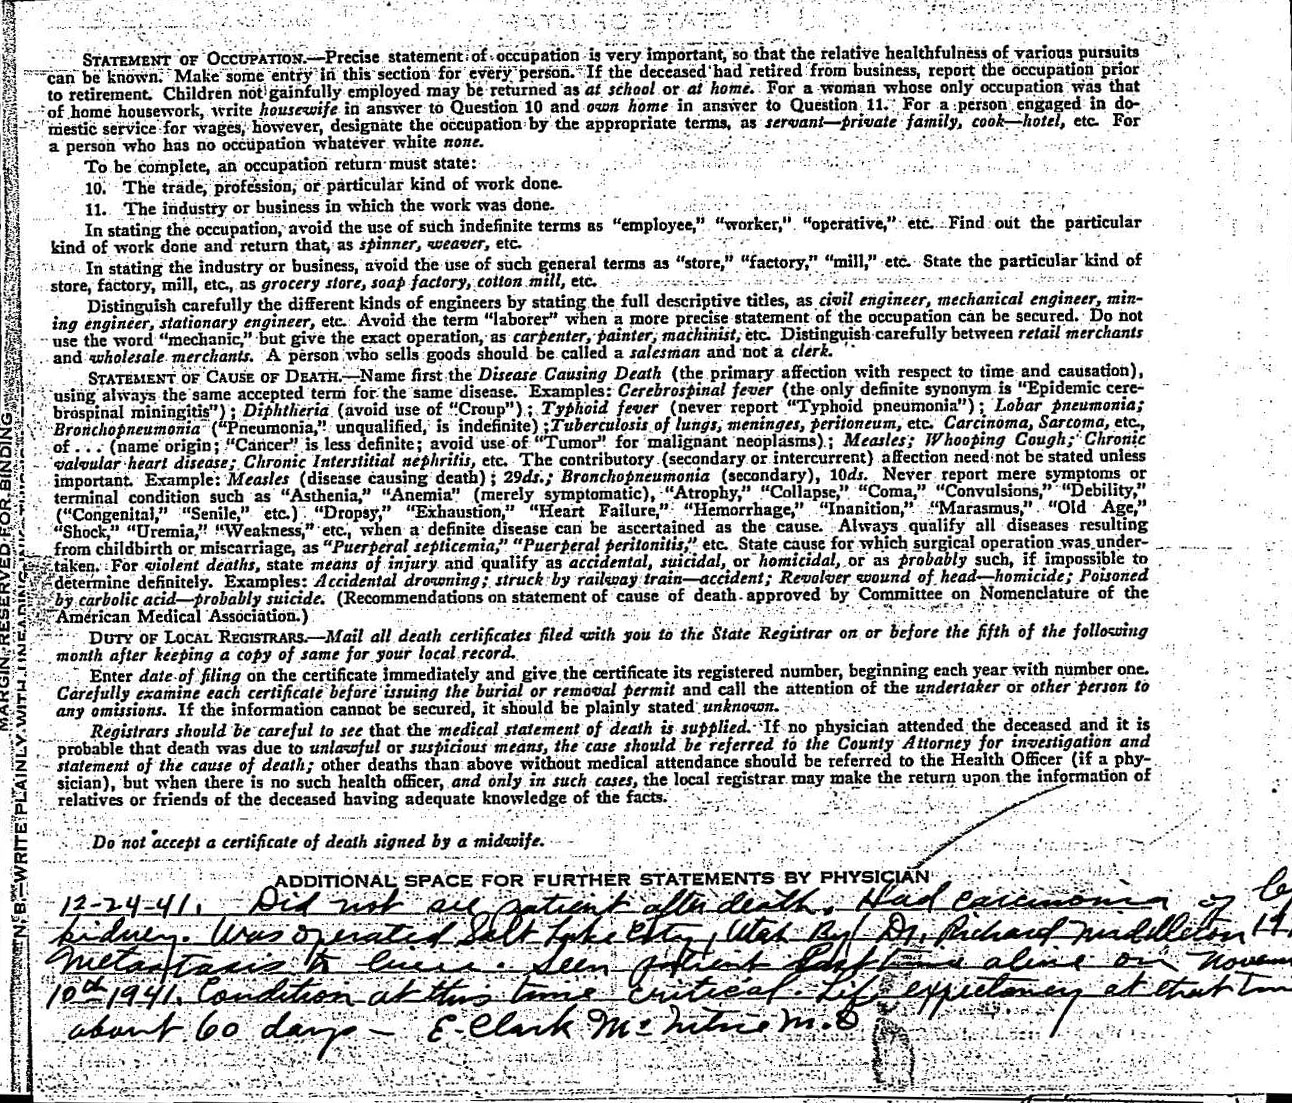 STATE OF UTAH
STATEMENT OF OCCUPATION.—Precise statement of occupation is very important, so that the relative healthfulness of various pursuits
can be known. Make some entry in this section for every person. If the deceased had retired from business, report the occupation prior
to retirement. Children not gainfully employed may be returned as at school or at home. For a woman whose only occupation was that
of home housework, write housewife in answer to Question 10 and own home in answer to Question 11. For a person engaged in do-
mestic service for wages, however, designate the occupation by the appropriate terms, as servant—private family, cook—hotel, etc. For
a person who has no occupation whatever white none.
To be complete, an occupation return must state:
10. The trade, profession, or particular kind of work done.
11. The industry or business in which the work was done.
In stating the occupation, avoid the use of such indefinite terms as "employee," "worker," "operative," etc. Find out the particular
kind of work done and return that, as spinner, weaver, etc.
In stating the industry or business, avoid the use of such general terms as "store," "factory," "mill," etc. State the particular kind of
store, factory, mill, etc., as grocery store, soap factory, cotton mill, etc.
Distinguish carefully the different kinds of engineers by stating the full descriptive titles, as civil engineer, mechanical engineer, min-
ing engineer, stationary engineer, etc. Avoid the term "laborer" when a more precise statement of the occupation can be secured. Do not
use the word "mechanic," but give the exact operation, as carpenter, painter, machinist, etc. Distinguish carefully between retail merchants
and wholesale merchants. A person who sells goods should be called a salesman and not a clerk.
STATEMENT OF CAUSE OF DEATH.—Name first the Disease Causing Death (the primary affection with respect to time and causation),
using always the same accepted term for the same disease. Examples: Cerebrospinal fever (the only definite synonym is "Epidemic cere-
brospinal miningitis"); Diphtheria (avoid use of "Croup"); Typhoid fever (never report "Typhoid pneumonia"); Lobar pneumonia;
Bronchopneumonia ("Pneumonia," unqualified, is indefinite); Tuberculosis of lungs, meninges, peritoneum, etc. Carcinoma, Sarcoma, etc.,
of . . . (name origin; "Cancer" is less definite; avoid use of "Tumor" for malignant neoplasms); Measles; Whooping Cough; Chronic
valvular heart disease; Chronic Interstitial nephritis, etc. The contributory (secondary or intercurrent) affection need not be stated unless
important. Example: Measles (disease causing death); 29ds.; Bronchopneumonia (secondary), 10ds. Never report mere symptoms or
terminal condition such as "Asthenia," "Anemia" (merely symptomatic), "Atrophy," "Collapse," "Coma," "Convulsions," "Debility,"
("Congenital," "Senile," etc.) "Dropsy," "Exhaustion," "Heart Failure," "Hemorrhage," "Inanition," "Marasmus," "Old Age,"
"Shock," "Uremia," "Weakness," etc., when a definite disease can be ascertained as the cause. Always qualify all diseases resulting
from childbirth or miscarriage, as "Puerperal septicemia," "Puerperal peritonitis," etc. State cause for which surgical operation was under-
taken. For violent deaths, state means of injury and qualify as accidental, suicidal, or homicidal, or as probably such, if impossible to
determine definitely. Examples: Accidental drowning; struck by railway train—accident; Revolver wound of head—homicide; Poisoned
by carbolic acid—probably suicide. (Recommendations on statement of cause of death approved by Committee on Nomenclature of the
American Medical Association.)
DUTY OF LOCAL REGISTRARS.—Mail all death certificates filed with you to the State Registrar on or before the fifth of the following
month after keeping a copy of same for your local record.
Enter date of filing on the certificate immediately and give the certificate its registered number, beginning each year with number one.
Carefully examine each certificate before issuing the burial or removal permit and call the attention of the undertaker or other person to
any omissions. If the information cannot be secured, it should be plainly stated unknown.
Registrars should be careful to see that the medical statement of death is supplied. If no physician attended the deceased and it is
probable that death was due to unlawful or suspicious means, the case should be referred to the County Attorney for investigation and
statement of the cause of death; other deaths than above without medical attendance should be referred to the Health Officer (if a phy-
sician), but when there is no such health officer, and only in such cases, the local registrar may make the return upon the information of
relatives or friends of the deceased having adequate knowledge of the facts.
Do not accept a certificate of death signed by a midwife.
ADDITIONAL SPACE FOR FURTHER STATEMENTS BY PHYSICIAN
12-24-41. Did not see patient after death. Had carcinoma of
kidney. Was operated Salt Lake City, Utah By Dr. Richard Middleton 19
Metastasis to . Seen patient last time alive on Novem
10th 1941. Condition at this time critical. Life expectency at that time
about 60 days — E. Clark McIntire M.D
MARGIN RESERVED FOR BINDING
N. B.—WRITE PLAINLY WITH UNFADING